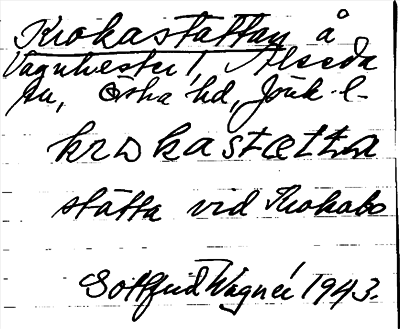 Krokastättan å
Vagnhester, Alseda
sn, Östra hd, Jönk. l.
krokastætta
stätta vid Krokabo
Gottfrid Wagner 1943.